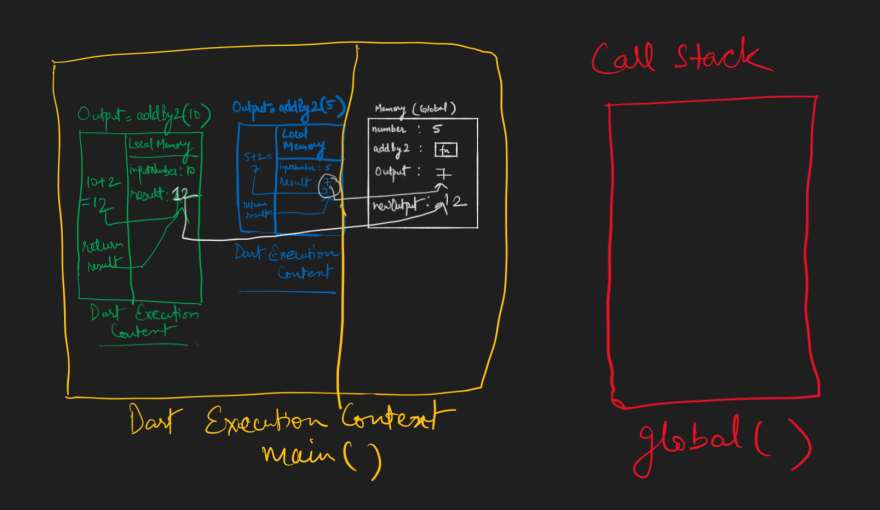 Call Stack
Output = addBy2(10)
Local Memory
inputNumber : 10
result : 12
10+2
=12
return
result
Dart Execution
Content
Output = addBy2(5)
Local
Memory
inputNumber : 5
result : 7
5+2=
7
return
result
Dart Execution
Content
Memory (Global)
number : 5
addby2 : fn
Output : 7
newOutput : 12
Dart Execution Context
main()
global()